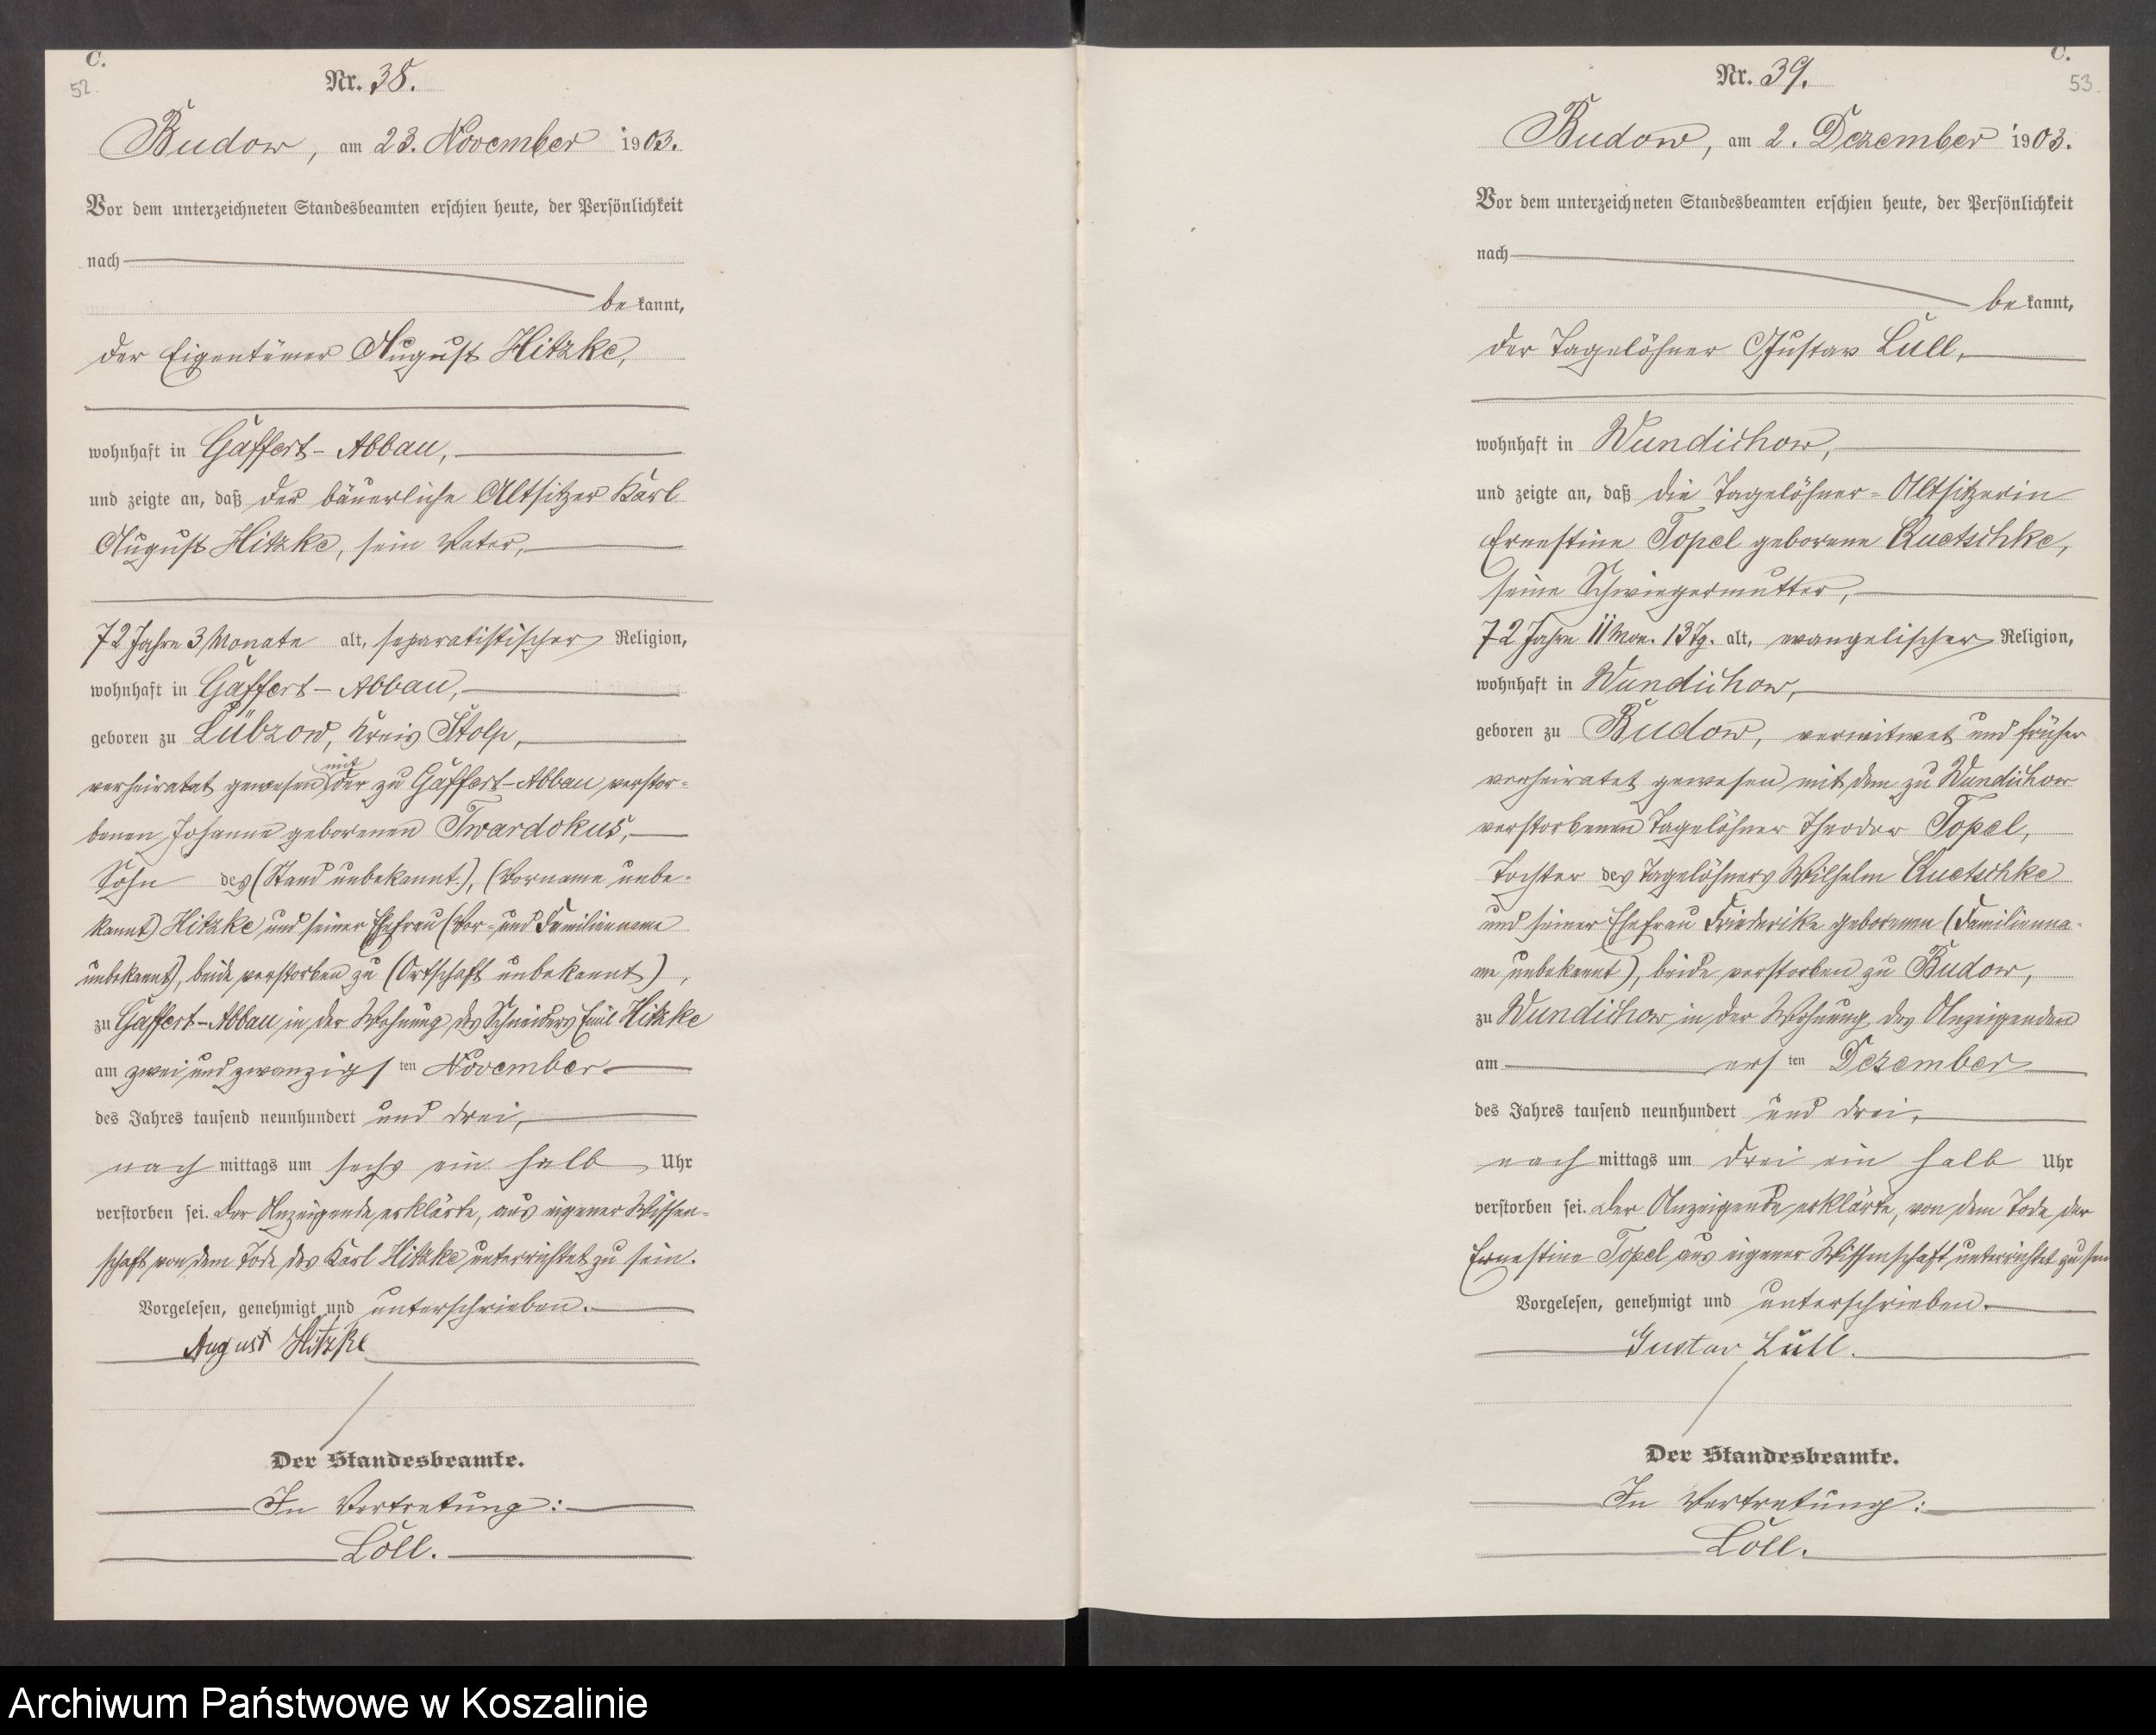 C.
52.
Nr. 38.
Budow, am 23. November 1903.
Vor dem unterzeichneten Standesbeamten erschien heute, der Persönlichkeit
nach
be kannt,
der Eigentümer August Hitzke,
wohnhaft in Gaffert-Abbau,
und zeigte an, daß der bäuerliche Altsitzer Karl
August Hitzke, sein Vater,
72 Jahre 3 Monate alt, separatistischer Religion,
wohnhaft in Gaffert-Abbau,
geboren zu Lübzow, Kreis Stolp,
mit
verheiratet gewesen der zu Gaffert-Abbau verstor-
benen Johanne geborenen Twardokus,
Sohn des (Stand unbekannt.), (Vorname unbe-
kannt) Hitzke und seiner Ehefrau (Vor- und Familienname
unbekannt), beide verstorben zu (Ortschaft unbekannt),
zu Gaffert-Abbau in der Wohnung des Schneiders Emil Hitzke
am zwei und zwanzigs ten November
des Jahres tausend neunhundert und drei,
nach mittags um sechs ein halb Uhr
verstorben sei. Der Anzeigende erklärte, aus eigener Wissen-
schaft von dem Tode des Karl Hitzke unterrichtet zu sein.
Vorgelesen, genehmigt und unterschrieben.
August Hitzke
Der Standesbeamte.
In Vertretung:
Löll.
C.
53.
Nr. 39.
Budow, am 2. Dezember 1903.
Vor dem unterzeichneten Standesbeamten erschien heute, der Persönlichkeit
nach
be kannt,
der Tagelöhner Gustav Lüll,
wohnhaft in Wundichow,
und zeigte an, daß die Tagelöhner-Altsitzerin
Ernestine Topel geborene Quetschke,
seine Schwiegermutter,
72 Jahre 11 Mon. 13 Tg. alt, evangelischer Religion,
wohnhaft in Wundichow,
geboren zu Budow, verwitwet und früher
verheiratet gewesen mit dem zu Wundichow
verstorbenen Tagelöhner Theodor Topel,
Tochter des Tagelöhners Wilhelm Quetschke
und seiner Ehefrau Friederike geborenen (Familienna-
me unbekannt), beide verstorben zu Budow,
zu Wundichow in der Wohnung des Anzeigenden
am ers ten Dezember
des Jahres tausend neunhundert und drei,
nach mittags um drei ein halb Uhr
verstorben sei. Der Anzeigende erklärte, von dem Tode der
Ernestine Topel aus eigener Wissenschaft unterrichtet zu sein
Vorgelesen, genehmigt und unterschrieben.
Gustav Lüll.
Der Standesbeamte.
In Vertretung:
Löll.
Archiwum Państwowe w Koszalinie